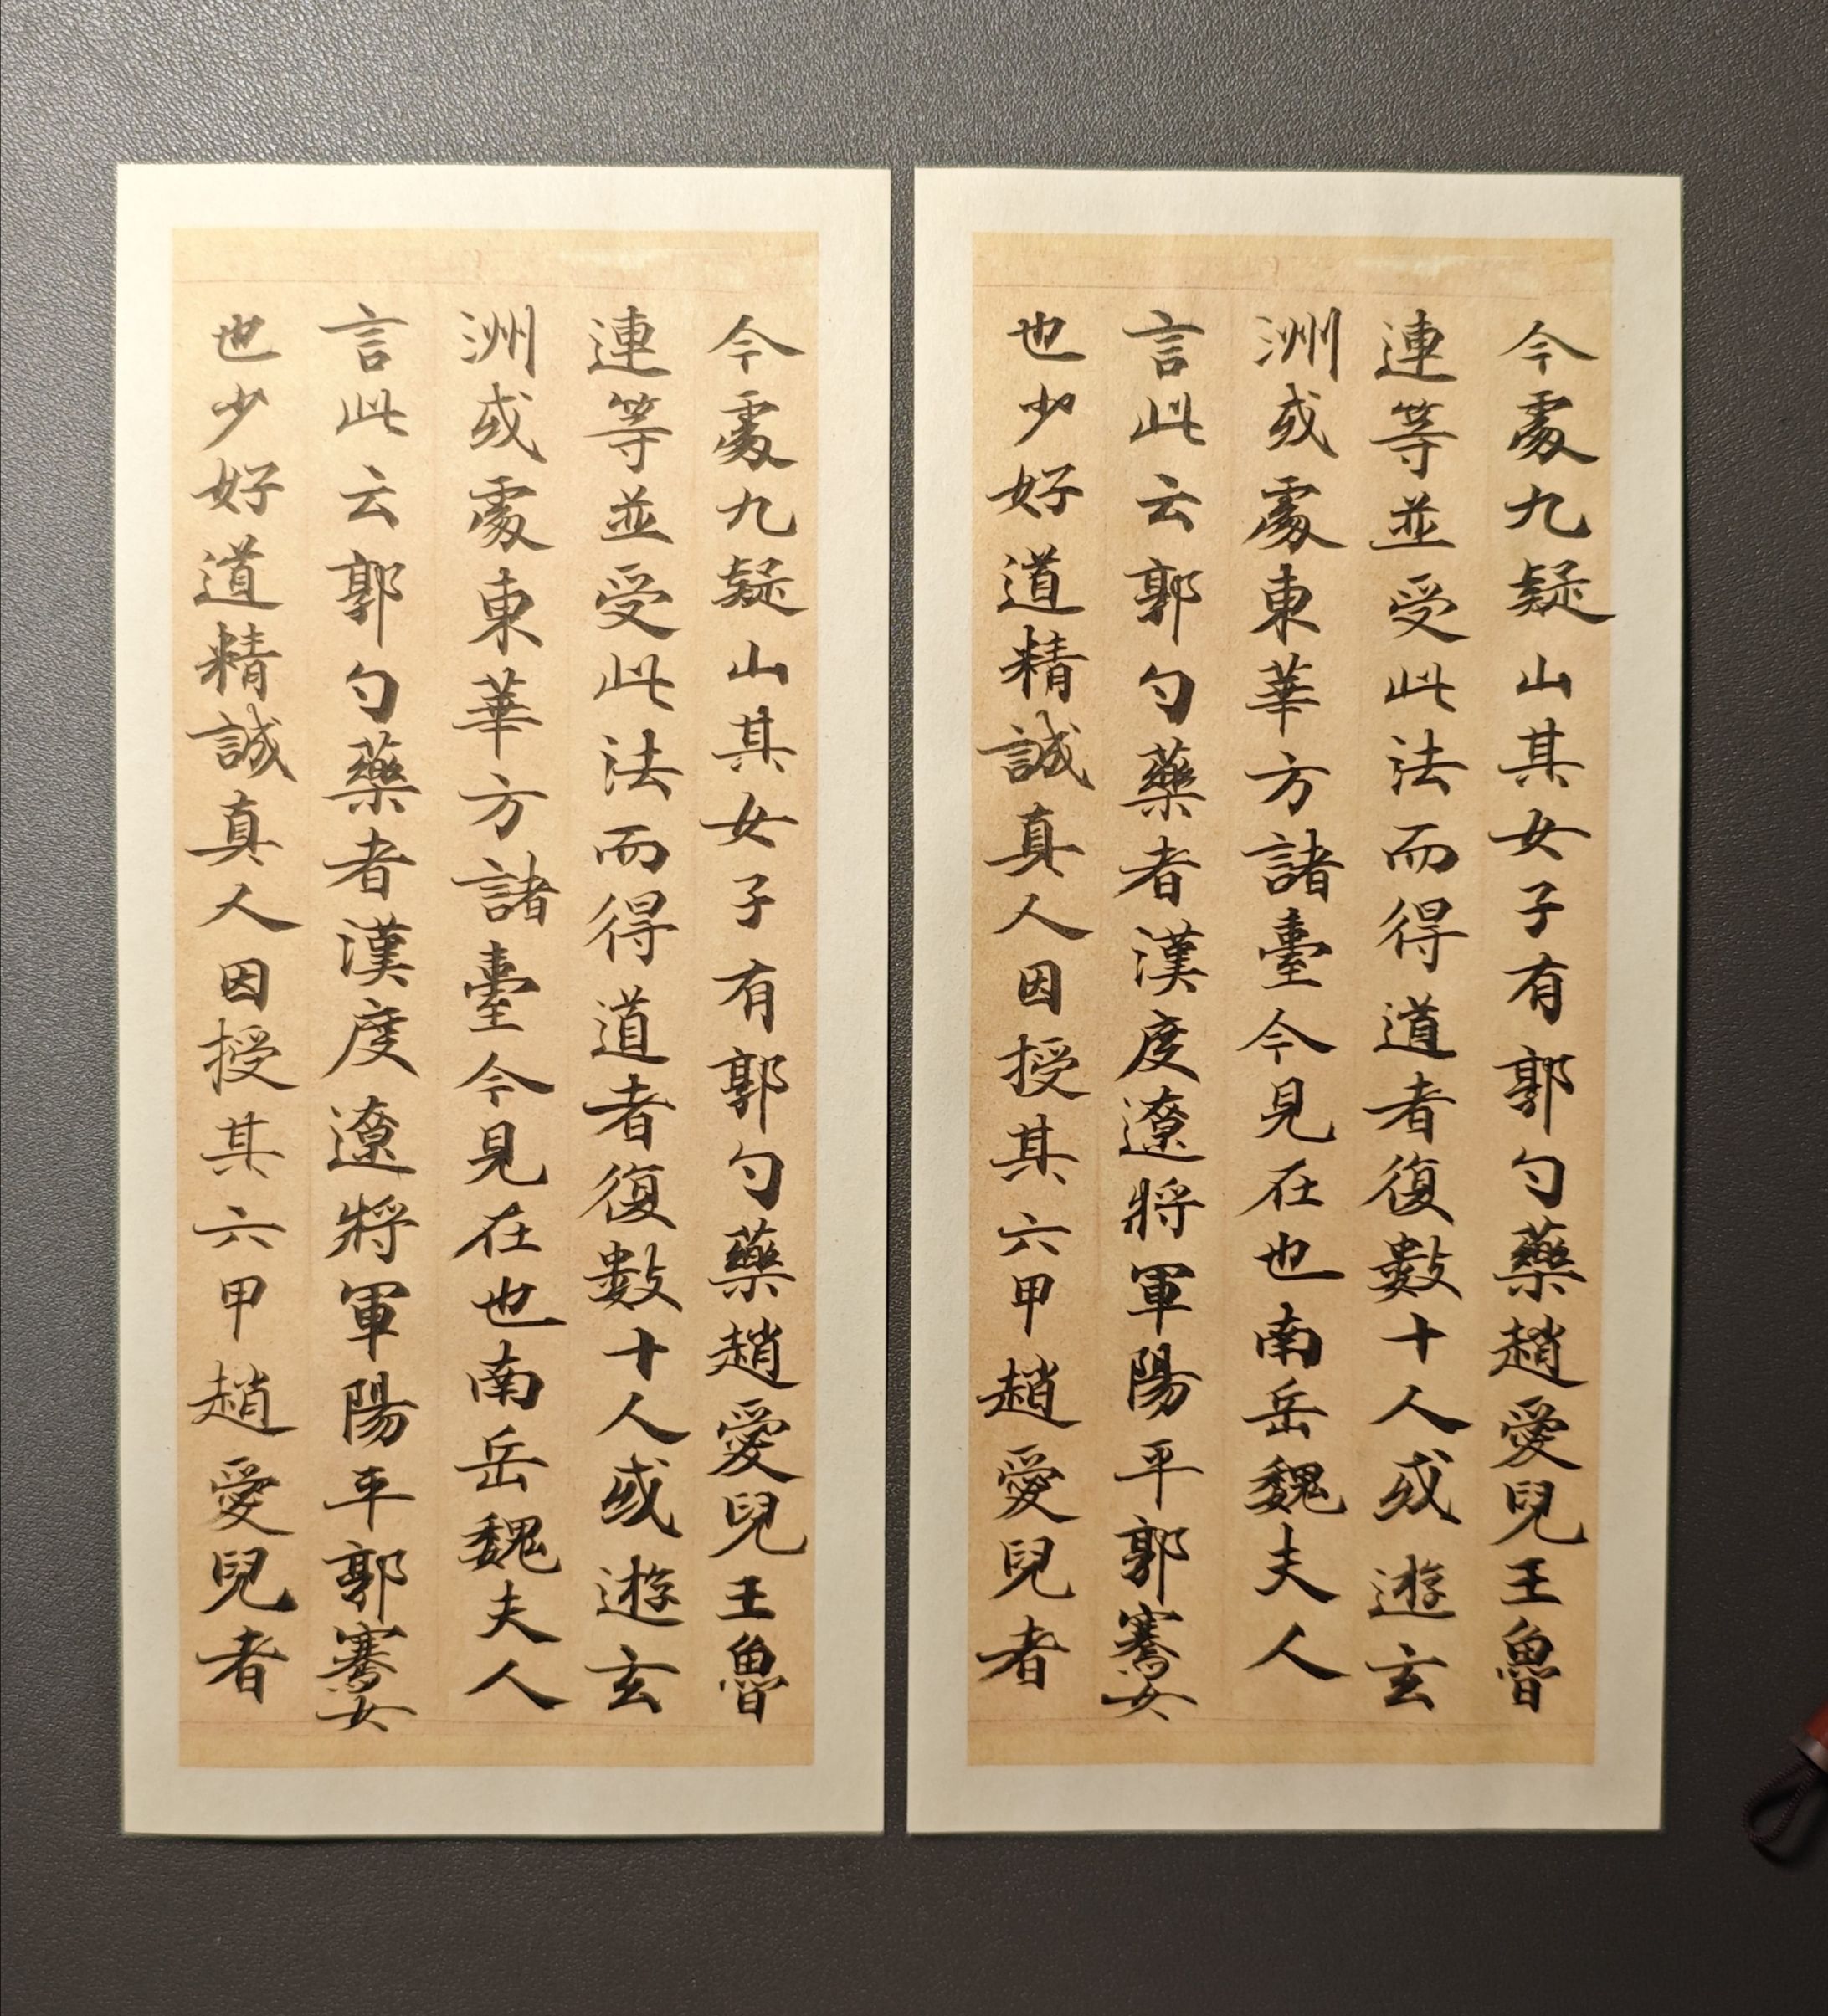 今處九疑山其女子有郭勺藥趙愛兒王魯
連等並受此法而得道者復數十人或遊玄
洲或處東華方諸臺今見在也南岳魏夫人
言此云郭勺藥者漢度遼將軍陽平郭騫女
也少好道精誠真人因授其六甲趙愛兒者
今處九疑山其女子有郭勺藥趙愛兒王魯
連等並受此法而得道者復數十人或遊玄
洲或處東華方諸臺今見在也南岳魏夫人
言此云郭勺藥者漢度遼將軍陽平郭騫女
也少好道精誠真人因授其六甲趙愛兒者